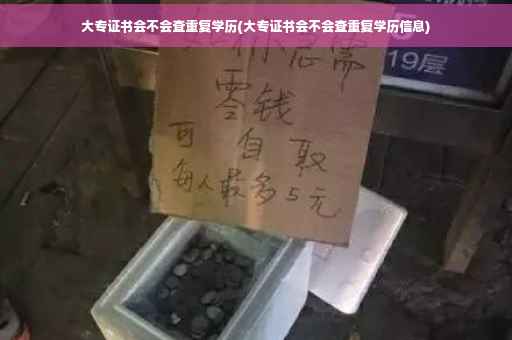 大专证书会不会查重复学历(大专证书会不会查重复学历信息)
如你急需
零钱
可自取
每人最多5元
19层